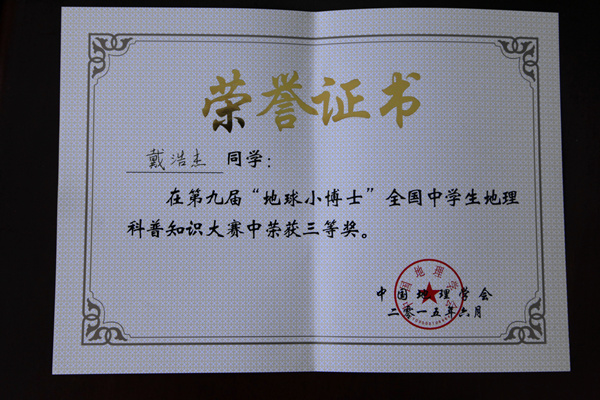 荣誉证书
戴浩杰 同学：
在第九届“地球小博士”全国中学生地理
科普知识大赛中荣获三等奖。
中国地理学会
中国地理学会
二零一五年六月